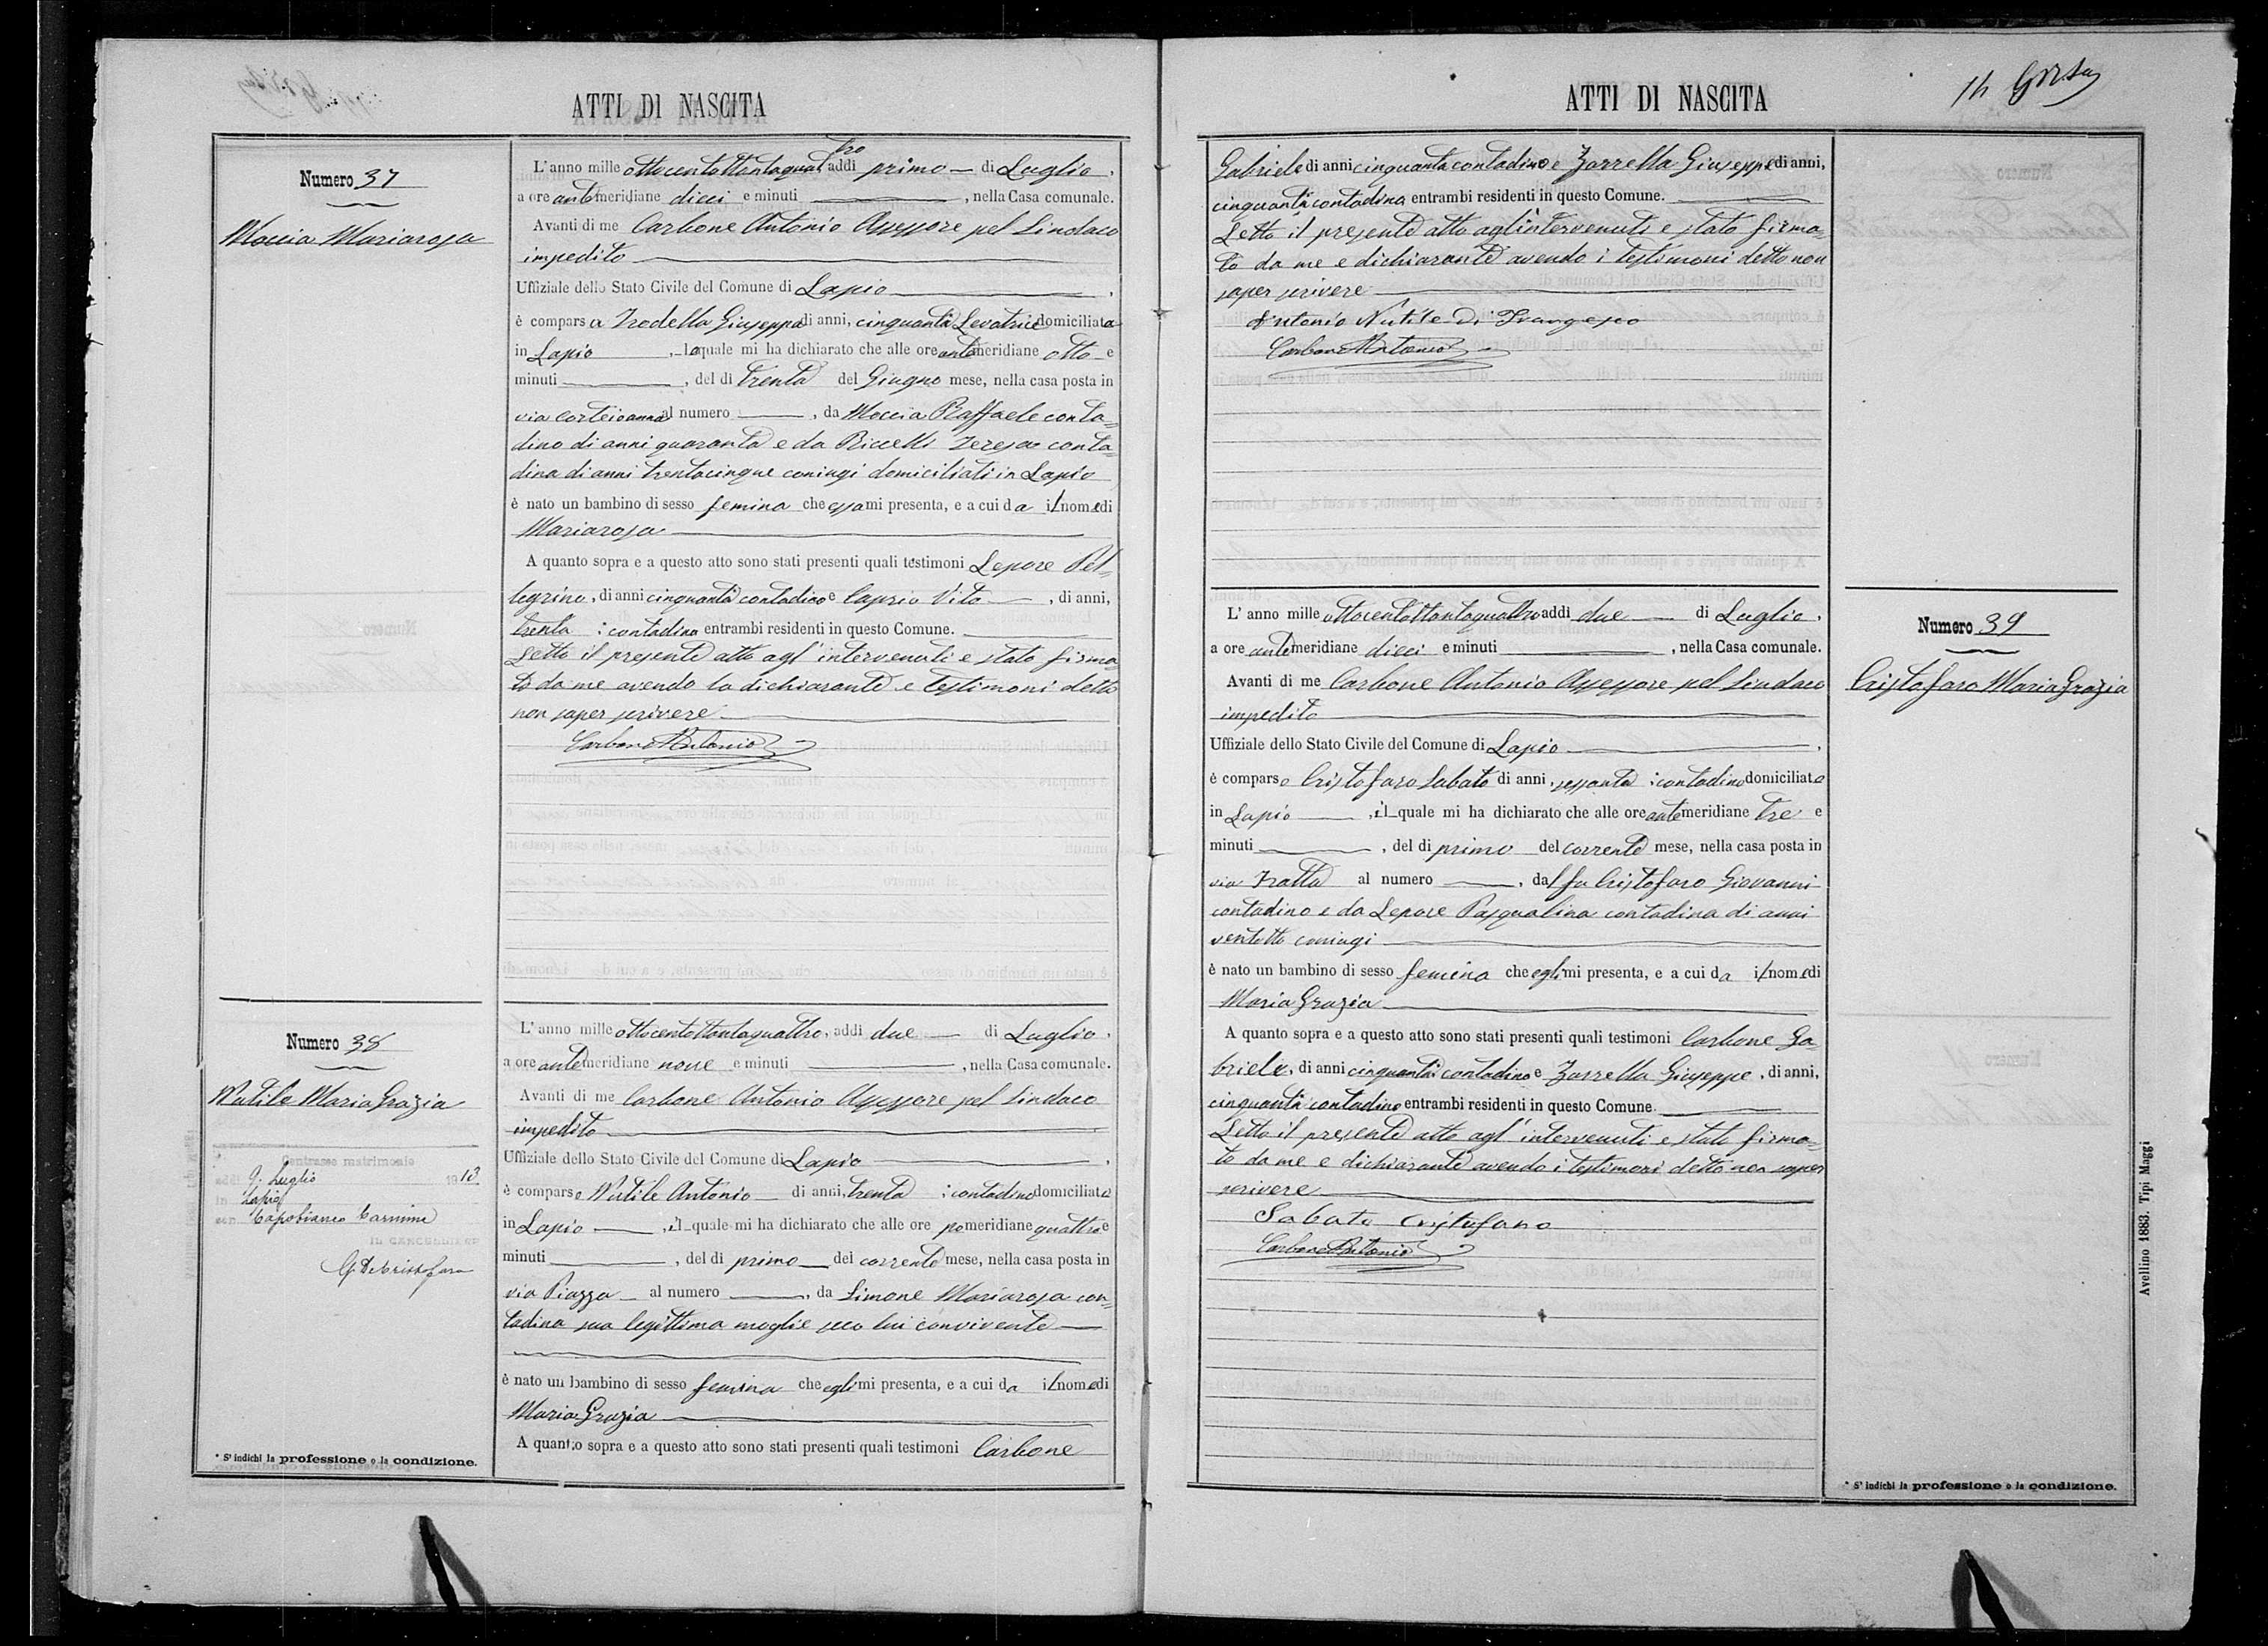 ATTI DI NASCITA
Numero 37
Moccia Mariarosa
L'anno mille ottocentottantaquattro addì primo di Luglio,
a ore antemeridiane dieci e minuti , nella Casa comunale.
Avanti di me Carbone Antonio Assessore pel Sindaco
impedito
Uffiziale dello Stato Civile del Comune di Lapio ,
è comparsa Trodella Giuseppa di anni, cinquanta Levatrice domiciliata
in Lapio , la quale mi ha dichiarato che alle ore antemeridiane otto e
minuti , del dì trenta del Giugno mese, nella casa posta in
via al numero , da Moccia Raffaele conta=
dino di anni quaranta e da Riccelli Teresa conta=
dina di anni trentacinque coniugi domiciliati in Lapio
è nato un bambino di sesso femina che essa mi presenta, e a cui da il nome di
Mariarosa
A quanto sopra e a questo atto sono stati presenti quali testimoni Lepore Pel=
legrino, di anni cinquanta contadino e Caprio Vito , di anni,
trenta : contadino entrambi residenti in questo Comune.
Letto il presente atto agl'intervenuti e stato firma=
to da me avendo la dichiarante e testimoni detto
non saper scrivere
Carbone Antonio
Numero 38
Nutile Maria Grazia
Contrasse matrimonio
addì 9. Luglio 1913
in Lapio
con Capobianco Carmine
IL CANCELLIERE
G. De Cristofaro
L'anno mille ottocentottantaquattro, addì due di Luglio,
a ore antemeridiane nove e minuti , nella Casa comunale.
Avanti di me Carbone Antonio Assessore pel Sindaco
impedito
Uffiziale dello Stato Civile del Comune di Lapio ,
è comparso Nutile Antonio di anni, trenta : contadino domiciliato
in Lapio , il quale mi ha dichiarato che alle ore pomeridiane quattro e
minuti , del dì primo del corrente mese, nella casa posta in
via Piazza al numero , da Simone Mariarosa con=
tadina sua legittima moglie seco lui convivente
è nato un bambino di sesso femina che egli mi presenta, e a cui da il nome di
Maria Grazia
A quanto sopra e a questo atto sono stati presenti quali testimoni Carbone
* S'indichi la professione o la condizione.
ATTI DI NASCITA
14
Gabriele di anni cinquanta contadino e Zarrella Giuseppe di anni,
cinquanta contadino entrambi residenti in questo Comune.
Letto il presente atto agl'intervenuti e stato firma=
to da me e dichiarante avendo i testimoni detto non
saper scrivere
Antonio Nutile Di
Carbone Antonio
Numero 39
Cristofaro Maria Grazia
L'anno mille ottocentottantaquattro addì due di Luglio,
a ore antemeridiane dieci e minuti , nella Casa comunale.
Avanti di me Carbone Antonio Assessore pel Sindaco
impedito
Uffiziale dello Stato Civile del Comune di Lapio ,
è comparso Cristofaro Sabato di anni, sessanta : contadino domiciliato
in Lapio , il quale mi ha dichiarato che alle ore antemeridiane tre e
minuti , del dì primo del corrente mese, nella casa posta in
via Tratta al numero , dal fu Cristofaro Giovanni
contadino e da Lepore Pasqualina contadina di anni
ventotto coniugi
è nato un bambino di sesso femina che egli mi presenta, e a cui da il nome di
Maria Grazia
A quanto sopra e a questo atto sono stati presenti quali testimoni Carbone Ga=
briele, di anni cinquanta contadino e Zarrella Giuseppe, di anni,
cinquanta contadino entrambi residenti in questo Comune.
Letto il presente atto agl'intervenuti e stato firma=
to da me e dichiarante avendo i testimoni detto non saper
scrivere
Sabato Cristofano
Carbone Antonio
Avellino 1883. Tipi Maggi
* S'indichi la professione o la condizione.